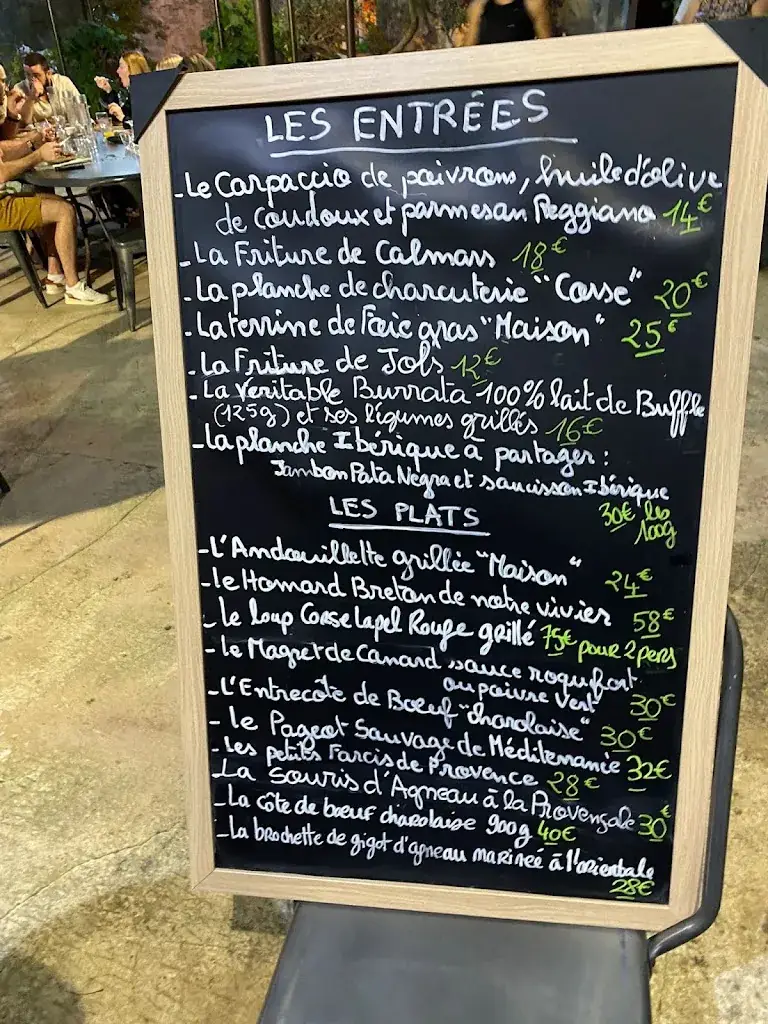 LES ENTRÉES
- Le Carpaccio de poivrons, huile d'olive
de Coudoux et parmesan Reggiano 14€
- La Friture de Calmars 18€
- La planche de charcuterie "Corse" 20€
- La terrine de Foie gras "Maison" 25€
- La Friture de Jols 12€
- La Veritable Burrata 100% lait de Buffle
(125g) et ses légumes grillés 16€
- La planche Ibérique à partager :
Jambon Pata Negra et saucisson Ibérique
30€ les
100g
LES PLATS
- L'Andouillette grillée "Maison" 24€
- le Homard Breton de notre vivier 58€
- le loup Corse label Rouge grillé 75€ pour 2 pers
- le Magret de Canard sauce roquefort
ou poivre Vert 30€
- L'Entrecôte de Bœuf "charolaise" 30€
- le Pageot Sauvage de Méditerranie 32€
- les petits Farcis de Provence 28€
- La Souris d'Agneau à la Provençale 30€
- La côte de bœuf charolaise 900g 40€
- La brochette de gigot d'agneau marineé à l'orientale
28€